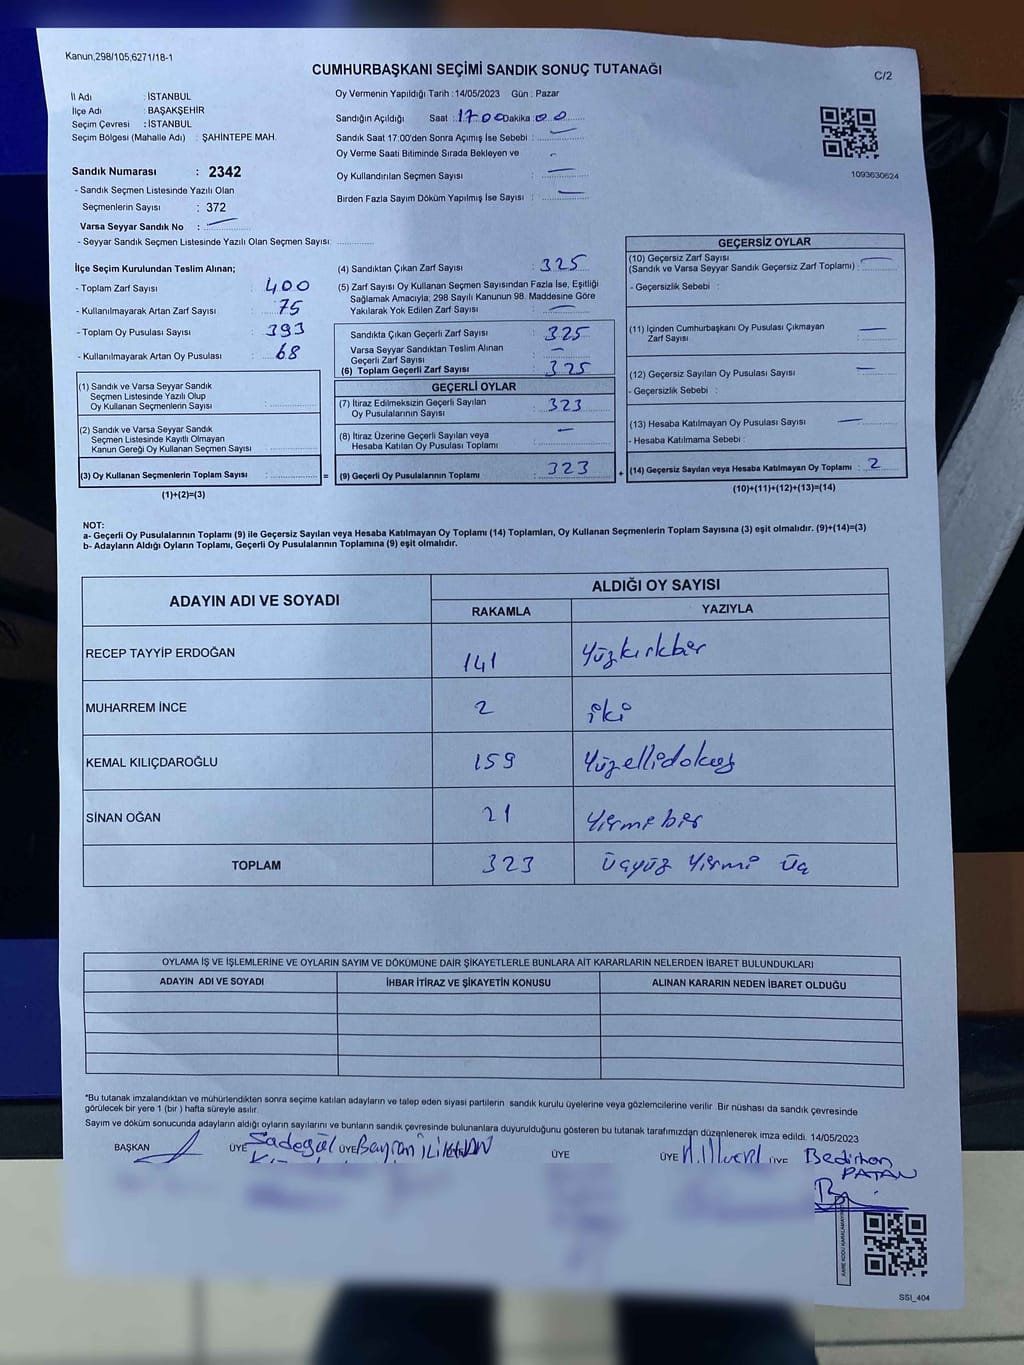 Kanun;298/105,6271/18-1
CUMHURBAŞKANI SEÇİMİ SANDIK SONUÇ TUTANAĞI
C/2
İl Adı : İSTANBUL
İlçe Adı : BAŞAKŞEHİR
Seçim Çevresi : İSTANBUL
Seçim Bölgesi (Mahalle Adı) : ŞAHİNTEPE MAH.
Oy Vermenin Yapıldığı Tarih :14/05/2023 Gün : Pazar
Sandığın Açıldığı Saat : 17 00 Dakika 00
Sandık Saat 17:00'den Sonra Açımış İse Sebebi : —
Oy Verme Saati Bitiminde Sırada Bekleyen ve
Oy Kullandırılan Seçmen Sayısı : —
Birden Fazla Sayım Döküm Yapılmış İse Sayısı : —
1093630624
Sandık Numarası : 2342
- Sandık Seçmen Listesinde Yazılı Olan
Seçmenlerin Sayısı : 372
Varsa Seyyar Sandık No : —
- Seyyar Sandık Seçmen Listesinde Yazılı Olan Seçmen Sayısı:
İlçe Seçim Kurulundan Teslim Alınan;
- Toplam Zarf Sayısı : 400
- Kullanılmayarak Artan Zarf Sayısı : 75
- Toplam Oy Pusulası Sayısı : 393
- Kullanılmayarak Artan Oy Pusulası : 68
(1) Sandık ve Varsa Seyyar Sandık
Seçmen Listesinde Yazılı Olup
Oy Kullanan Seçmenlerin Sayısı :
(2) Sandık ve Varsa Seyyar Sandık
Seçmen Listesinde Kayıtlı Olmayan
Kanun Gereği Oy Kullanan Seçmen Sayısı :
(3) Oy Kullanan Seçmenlerin Toplam Sayısı :
(1)+(2)=(3)
(4) Sandıktan Çıkan Zarf Sayısı : 325
(5) Zarf Sayısı Oy Kullanan Seçmen Sayısından Fazla İse, Eşitliği
Sağlamak Amacıyla; 298 Sayılı Kanunun 98. Maddesine Göre
Yakılarak Yok Edilen Zarf Sayısı : —
Sandıkta Çıkan Geçerli Zarf Sayısı : 325
Varsa Seyyar Sandıktan Teslim Alınan
Geçerli Zarf Sayısı : —
(6) Toplam Geçerli Zarf Sayısı : 325
GEÇERLİ OYLAR
(7) İtiraz Edilmeksizin Geçerli Sayılan
Oy Pusulalarının Sayısı : 323
(8) İtiraz Üzerine Geçerli Sayılan veya
Hesaba Katılan Oy Pusulası Toplamı : —
= (9) Geçerli Oy Pusulalarının Toplamı : 323
GEÇERSİZ OYLAR
(10) Geçersiz Zarf Sayısı
(Sandık ve Varsa Seyyar Sandık Geçersiz Zarf Toplamı) : —
- Geçersizlik Sebebi :
(11) İçinden Cumhurbaşkanı Oy Pusulası Çıkmayan
Zarf Sayısı : —
(12) Geçersiz Sayılan Oy Pusulası Sayısı : —
- Geçersizlik Sebebi :
(13) Hesaba Katılmayan Oy Pusulası Sayısı : —
- Hesaba Katılmama Sebebi :
+ (14) Geçersiz Sayılan veya Hesaba Katılmayan Oy Toplamı : 2
(10)+(11)+(12)+(13)=(14)
NOT:
a- Geçerli Oy Pusulalarının Toplamı (9) ile Geçersiz Sayılan veya Hesaba Katılmayan Oy Toplamı (14) Toplamları, Oy Kullanan Seçmenlerin Toplam Sayısına (3) eşit olmalıdır. (9)+(14)=(3)
b- Adayların Aldığı Oyların Toplamı, Geçerli Oy Pusulalarının Toplamına (9) eşit olmalıdır.
ADAYIN ADI VE SOYADI
ALDIĞI OY SAYISI
RAKAMLA YAZIYLA
RECEP TAYYİP ERDOĞAN 141 Yüzkırkbir
MUHARREM İNCE 2 iki
KEMAL KILIÇDAROĞLU 159 Yüzellidokuz
SİNAN OĞAN 21 Yirmebir
TOPLAM 323 Üçyüz Yirmi Üç
OYLAMA İŞ VE İŞLEMLERİNE VE OYLARIN SAYIM VE DÖKÜMÜNE DAİR ŞİKAYETLERLE BUNLARA AİT KARARLARIN NELERDEN İBARET BULUNDUKLARI
ADAYIN ADI VE SOYADI İHBAR İTİRAZ VE ŞİKAYETİN KONUSU ALINAN KARARIN NEDEN İBARET OLDUĞU
*Bu tutanak imzalandıktan ve mühürlendikten sonra seçime katılan adayların ve talep eden siyasi partilerin sandık kurulu üyelerine veya gözlemcilerine verilir. Bir nüshası da sandık çevresinde
görülecek bir yere 1 (bir ) hafta süreyle asılır.
Sayım ve döküm sonucunda adayların aldığı oyların sayılarını ve bunların sandık çevresinde bulunanlara duyurulduğunu gösteren bu tutanak tarafımızdan düzenlenerek imza edildi. 14/05/2023
BAŞKAN ÜYE Sadegül ÜYE Bayram ÜYE ÜYE ÜYE Bedirhan
PATAN
KARE KODU KARALAMAYINIZ
SSI_404